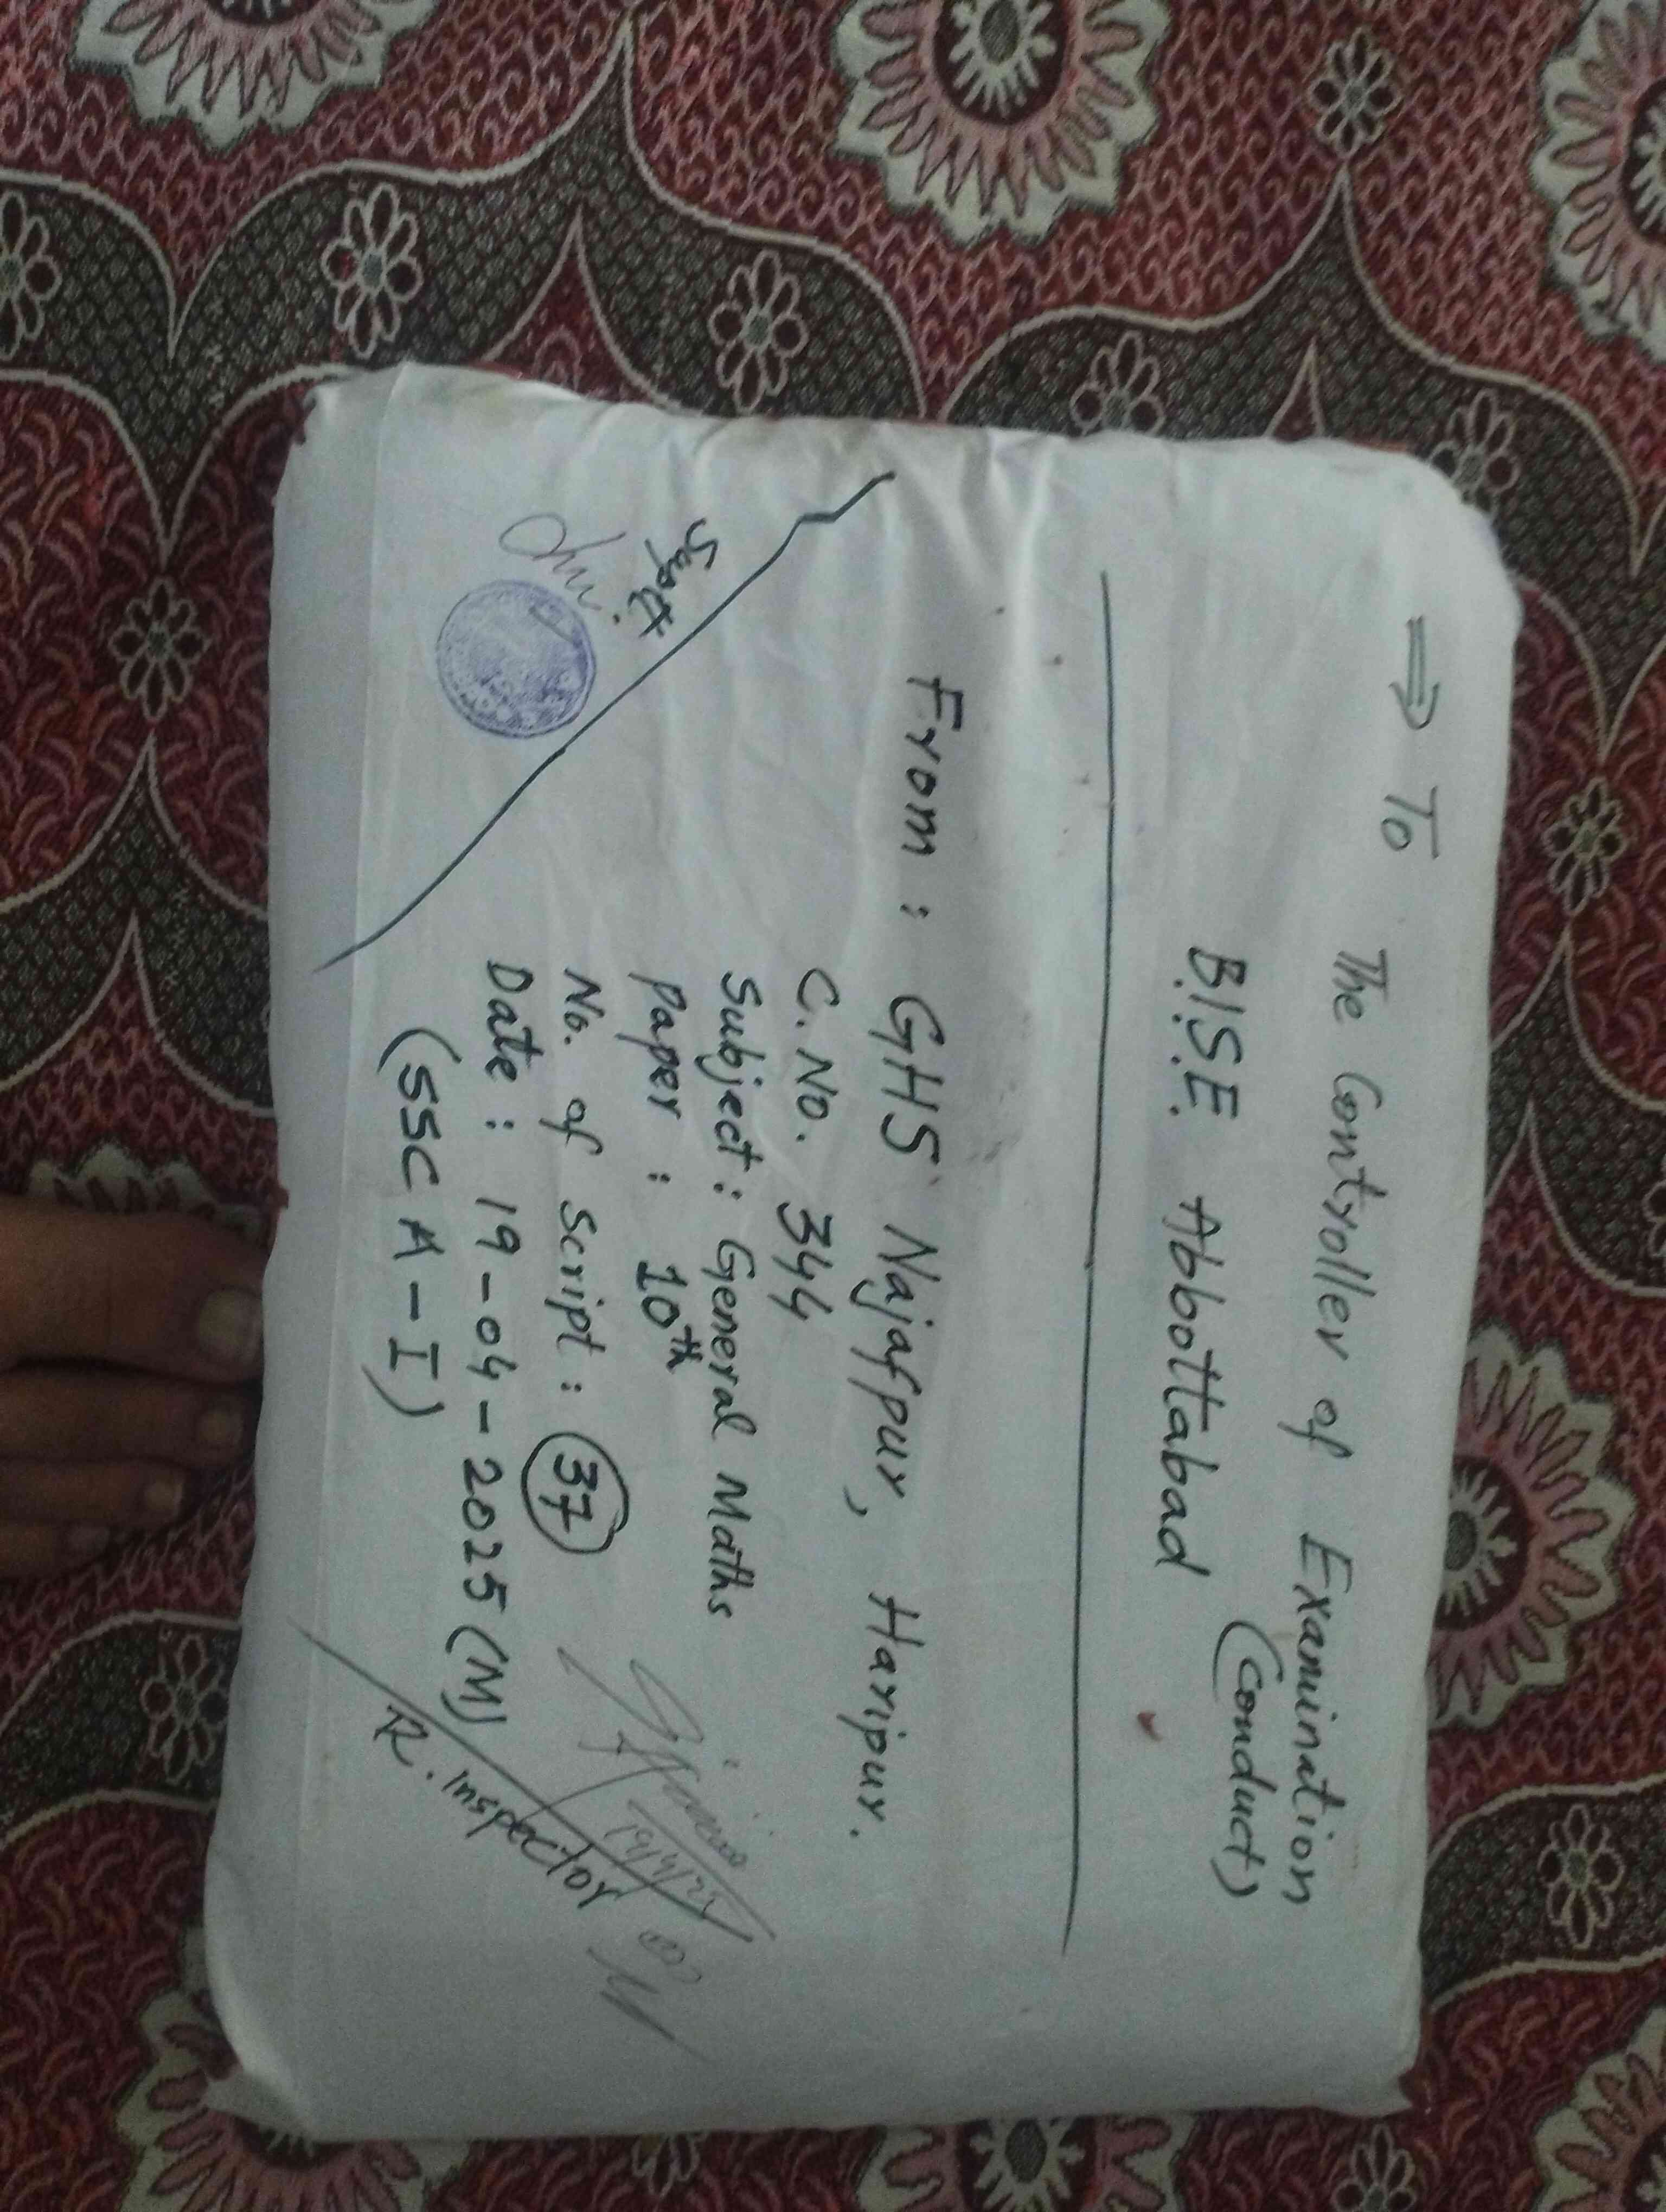 ⇒ To
The Controller of Examination
(Conduct)
B.I.S.E. Abbottabad
From : GHS Najafpur, Haripur.
C. No. 344
Subject : General Maths
Paper : 10th
No. of Script : 37
Date : 19-04-2025 (M)
(SSC A-I)
Suptt
19/4/25
R. Inspector